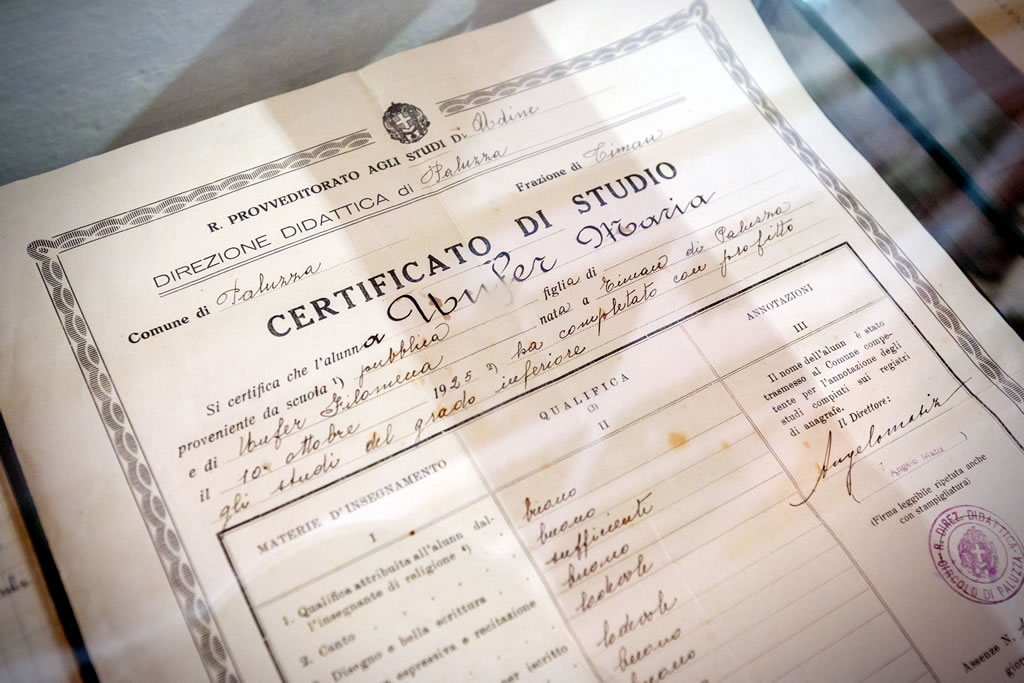 R. PROVVEDITORATO AGLI STUDI DI Udine
DIREZIONE DIDATTICA di Paluzza
Comune di Paluzza Frazione di Timau
CERTIFICATO DI STUDIO
Si certifica che l'alunna Unfer Maria
proveniente da scuola 1) pubblica figlia di
e di Unfer Filomena nata a Timau di Paluzza
il 10 ottobre 1925 2) ha completato con profitto
gli studi del grado inferiore
MATERIE D'INSEGNAMENTO
I
QUALIFICA
(3)
II
ANNOTAZIONI
III
1. Qualifica attribuita all'alunn dal-
l'insegnante di religione 4)
2. Canto
Disegno e bella scrittura
espressiva e recitazione
per iscritto
buono
buono
sufficiente
buono
lodevole
lodevole
buono
buono
Il nome dell'alunn è stato
trasmesso al Comune compe-
tente per l'annotazione degli
studi compiuti sui registri
di anagrafe.
Il Direttore:
Angelo Matiz
( Angelo Matiz )
(Firma leggibile ripetuta anche
con stampigliatura)
R. DIREZ. DIDATTICA
CIRCOLO DI PALUZZA
Assenze N.